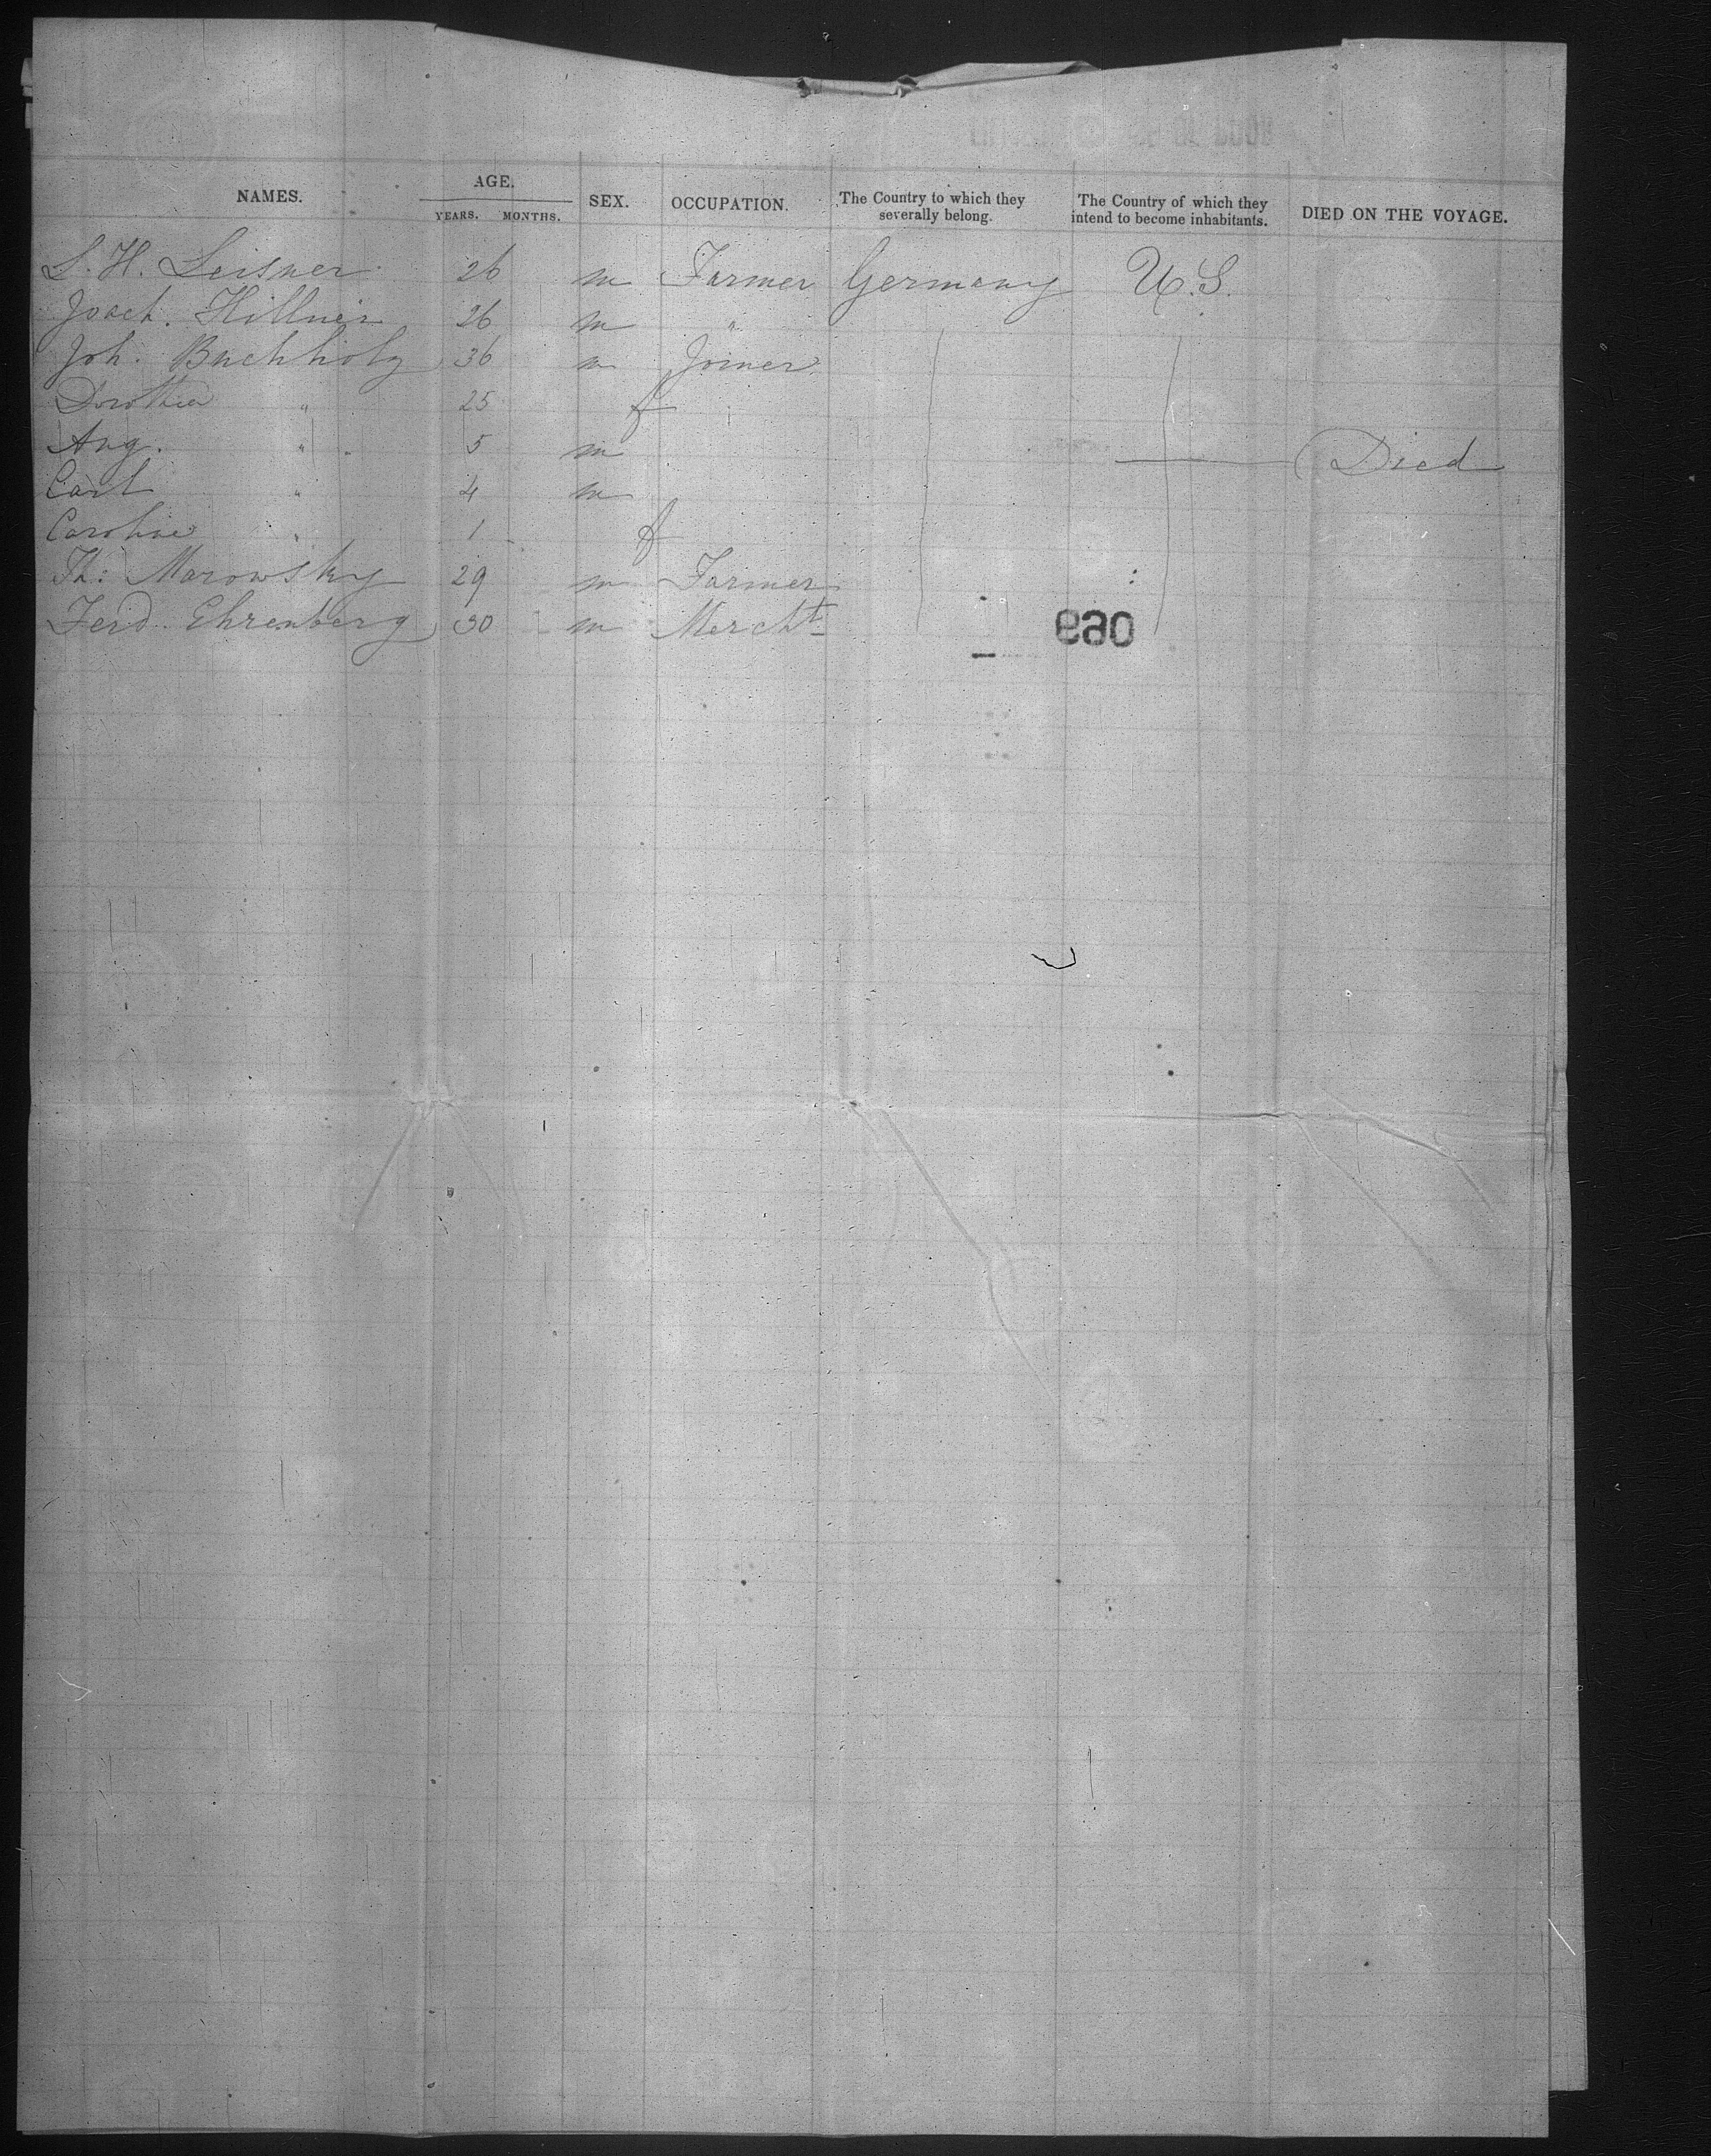 NAMES. AGE. YEARS. MONTHS. SEX. OCCUPATION. The Country to which they severally belong. The Country of which they intend to become inhabitants. DIED ON THE VOYAGE.
L. H. Leisner 26 m Farmer Germany U.S.
Joach. Hillner 26 m "
Joh. Buchholz 36 m Joiner
Dorothea " 25 f
Aug. " 5 m Died
Carl " 4 m
Caroline " 1 f
Th: Marowsky 29 m Farmer
Ferd. Ehrenberg 30 m Mercht